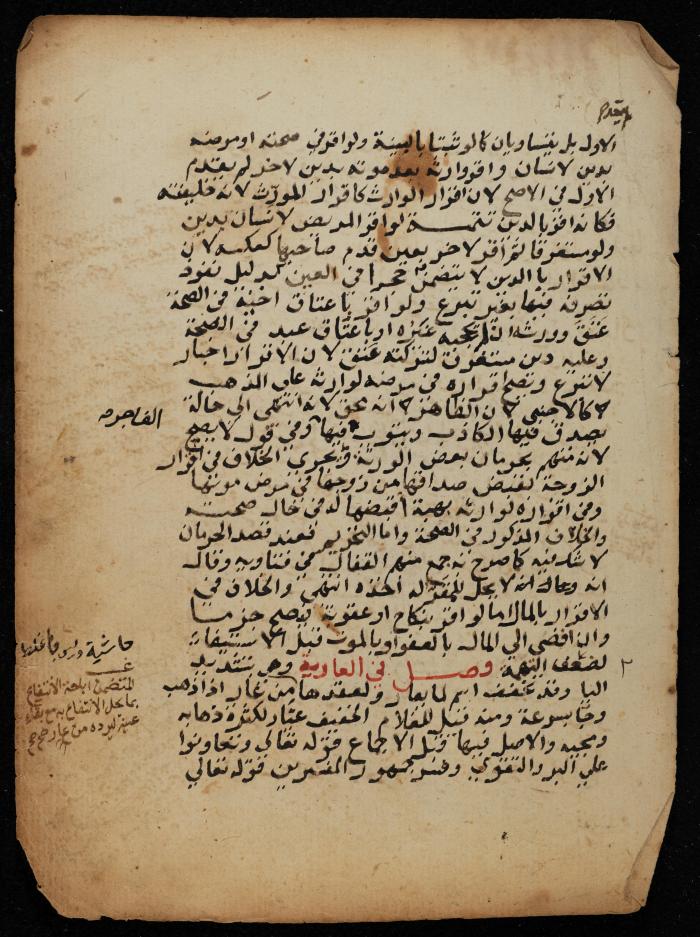 يقدم
الاول بل يتساويان كما لو ثبتا بالبينة ولو اقر في صحته او مرضه
بدين لانسان واقر وارثه بعد موته بدين لاخر لم يقدم
الاول في الاصح لان اقرار الوارث كاقرار المورث لانه خليفته
فكانه اقر بالدينين تتمة لو اقر المريض لانسان بدين
ولو مستغرقا ثم اقر لاخر بعين قدم صاحبها كعكسه لان
الاقرار بالدين لا يتضمن حجرا في العين بدليل نفوذ
تصرفه فيها بغير تبرع ولو اقر باعتاق اخيه في الصحة
عتق وورثه ان لم يحجبه غيره او باعتاق عبد في الصحة
وعليه دين مستغرق لتركته عتق لان الاقرار اخبار
لا تبرع ويصح اقراره في مرضه لوارثه على المذهب
كالاجنبي لان الظاهر انه محق لانه انتهى الى حالة
يصدق فيها الكاذب ويتوب فيها الفاجر وفي قول لا يصح
لانه متهم بحرمان بعض الورثة ويجري الخلاف في اقرار
الزوجة بقبض صداقها من زوجها في مرض موتها
وفي اقراره لوارثه بهبة اقبضها له في حال صحته
والخلاف المذكور في الصحة واما التحريم فعند قصد الحرمان
لا شك فيه كما صرح به جمع منهم القفال في فتاويه وقال
انه لا يحل للمقر له اخذه انتهى والخلاف في
الاقرار بالمال اما لو اقر بنكاح او عقوبة فيصح جزما
وان افضى الى المال بالعفو او بالموت قبل الاستيفاء
لضعف التهمة فصل في العارية وهي بتشديد
اليا وقد تخفف اسم لما يعار ولعقدها من عار اذا ذهب
وجا بسرعة ومنه قيل للغلام الخفيف عيار لكثرة ذهابه
ومجيه والاصل فيها قبل الاجماع قوله تعالى وتعاونوا
على البر والتقوى وفسر جمهور المفسرين قوله تعالى
الفاجر صح
حاشية
المتضمن اباحة الانتفاع
بما يحل الانتفاع به مع بقاء
عينه ليرده من عار